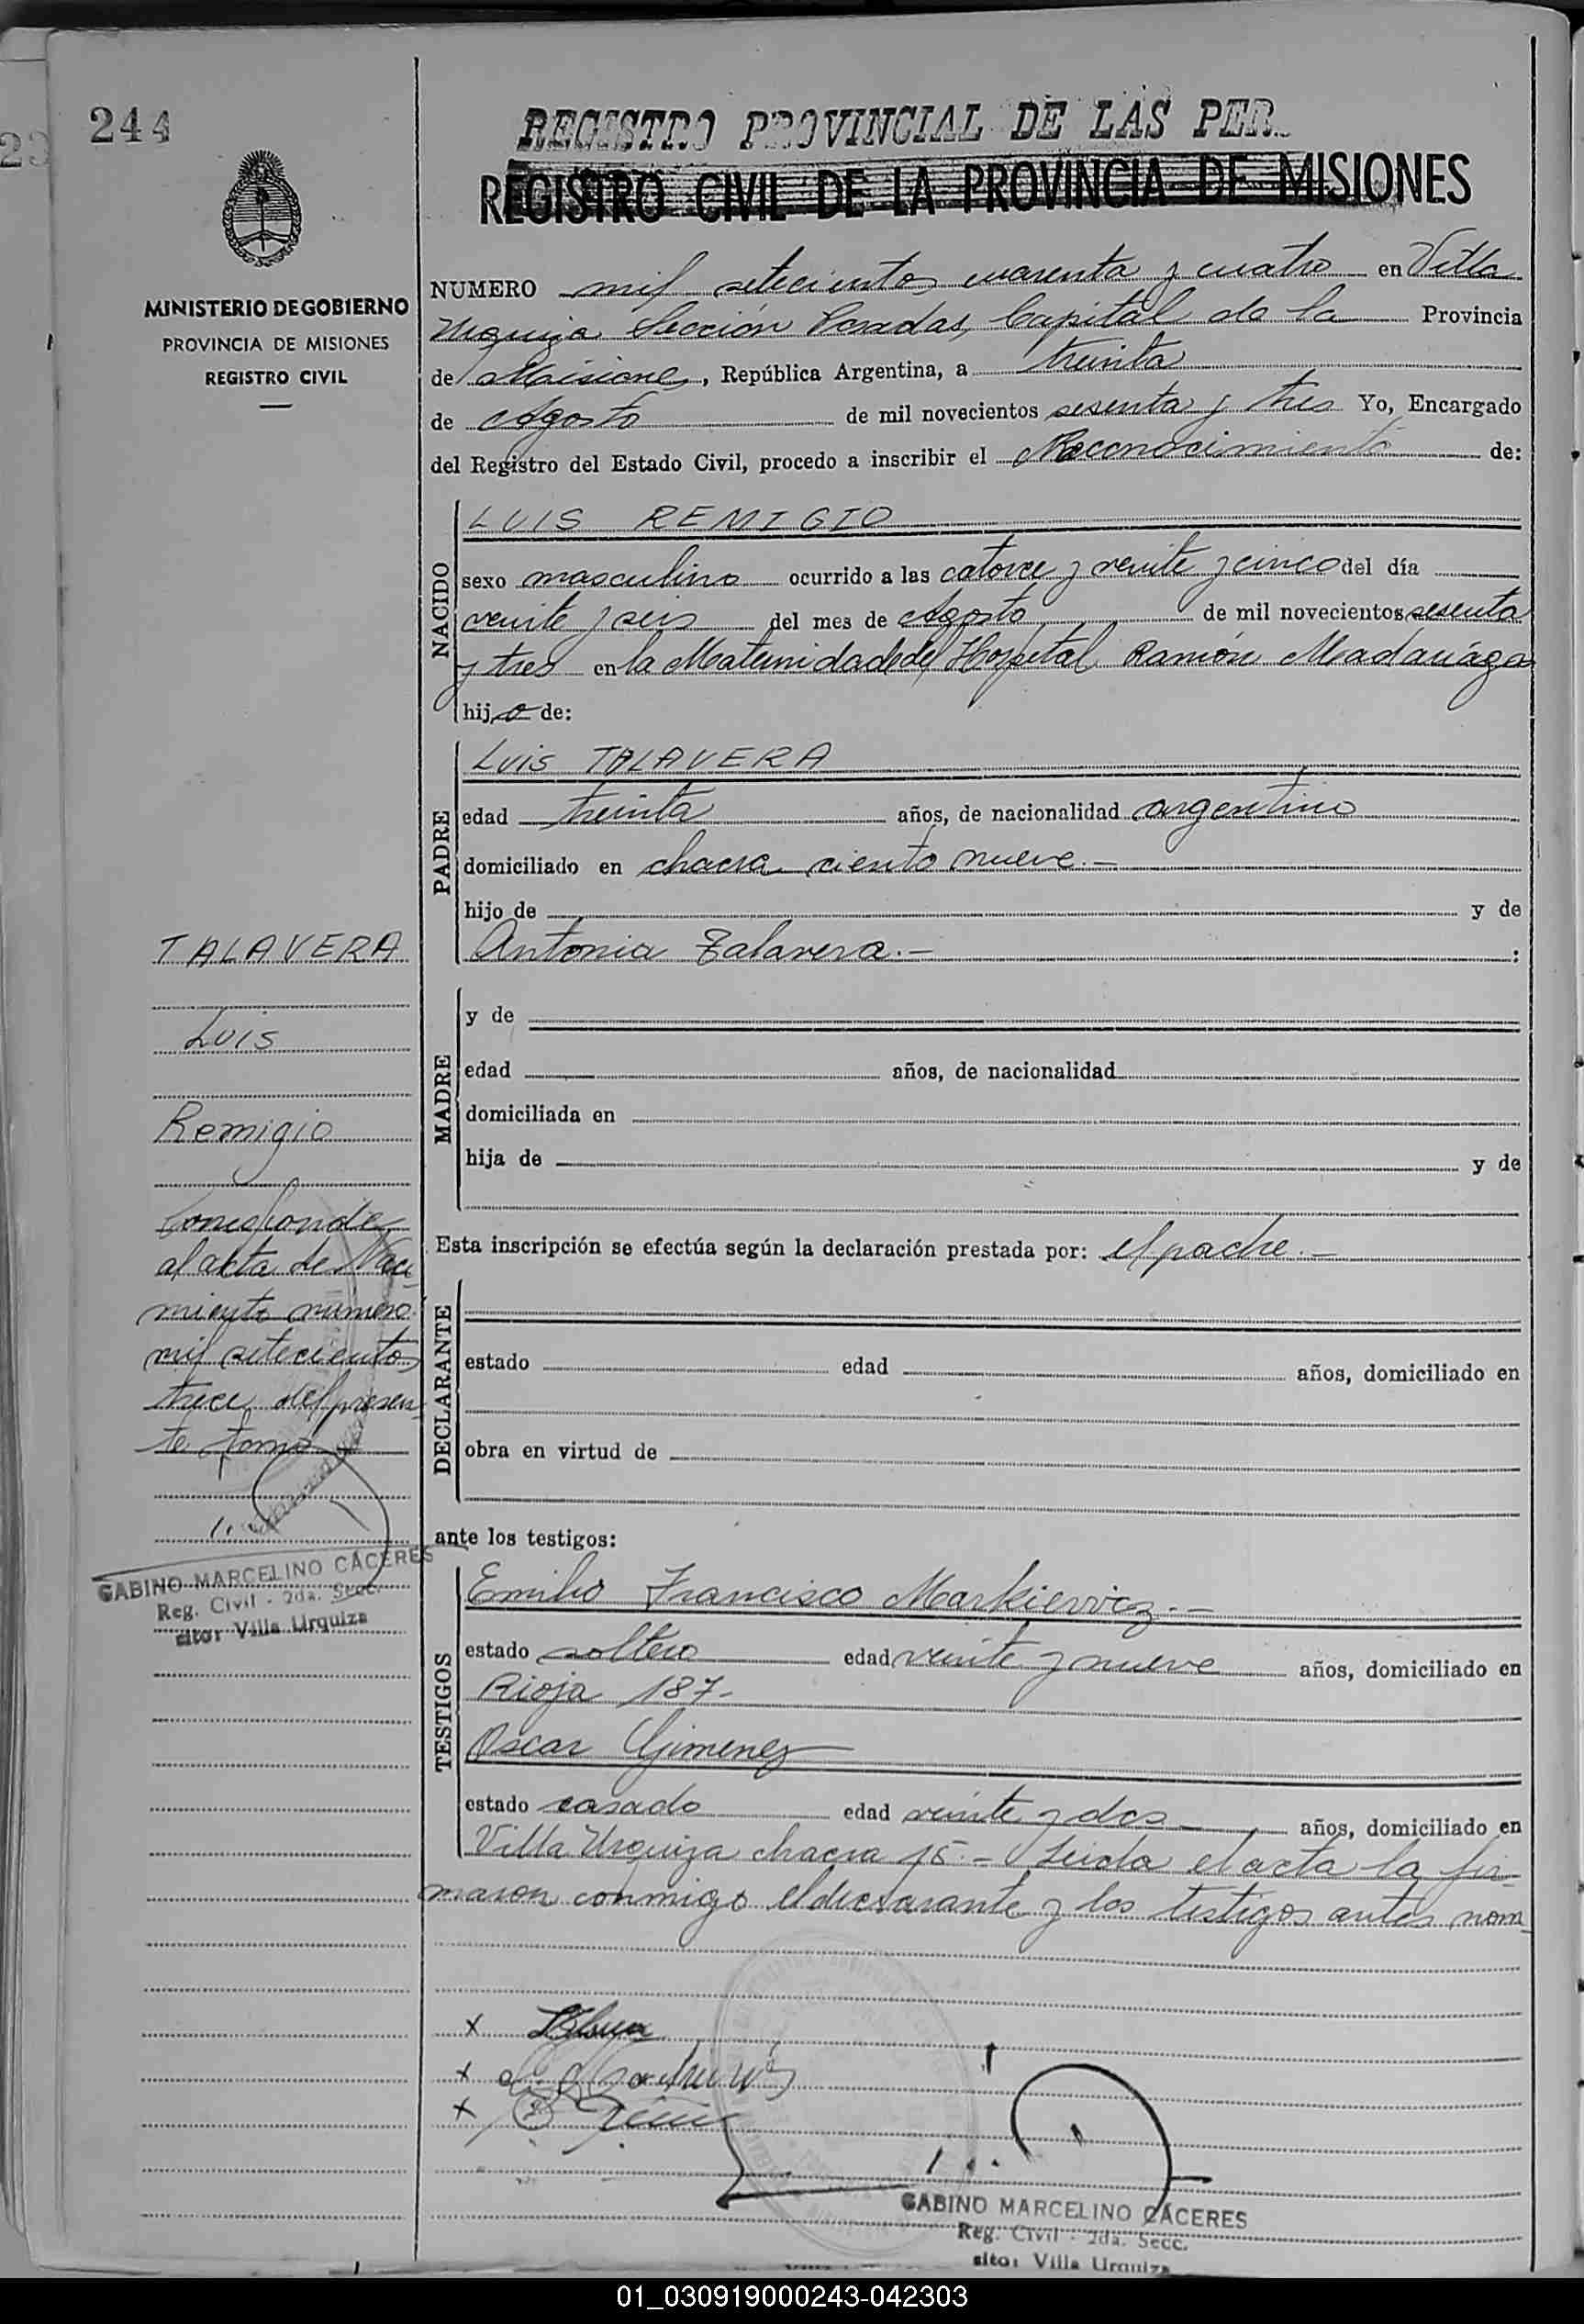 244
REGISTRO PROVINCIAL DE LAS PER
REGISTRO CIVIL DE LA PROVINCIA DE MISIONES
MINISTERIO DE GOBIERNO
PROVINCIA DE MISIONES
REGISTRO CIVIL
NUMERO mil setecientos cuarenta y cuatro en Villa
Urquiza Sección Posadas, Capital de la Provincia
de Misiones, República Argentina, a treinta
de Agosto de mil novecientos sesenta y tres Yo, Encargado
del Registro del Estado Civil, procedo a inscribir el Reconocimiento de:
NACIDO
LUIS REMIGIO
sexo masculino ocurrido a las catorce y veinte y cinco del día
veinte y seis del mes de Agosto de mil novecientos sesenta
y tres en la Maternidad del Hospital Ramón Madariaga
hijo de:
PADRE
Luis TALAVERA
edad treinta años, de nacionalidad argentino
domiciliado en chacra ciento nueve.-
hijo de y de
Antonia Talavera.- :
MADRE
y de
edad años, de nacionalidad
domiciliada en
hija de y de
Esta inscripción se efectúa según la declaración prestada por: el padre.-
DECLARANTE
estado edad años, domiciliado en
obra en virtud de
ante los testigos:
TESTIGOS
Emilio Francisco Markievicz.-
estado soltero edad veinte y nueve años, domiciliado en
Rioja 187-
Oscar Gimenez
estado casado edad veinte y dos años, domiciliado en
Villa Urquiza chacra 15.- Leida el acta la fir-
maron conmigo el declarante y los testigos antes nom
TALAVERA
Luis
Remigio
Corresponde
al acta de Naci
miento numero
mil setecientos
trece del presen
te tomo
GABINO MARCELINO CÁCERES
Reg. Civil - 2da. Secc.
sito: Villa Urquiza
x
x
x
GABINO MARCELINO CÁCERES
Reg. Civil - 2da. Secc.
sito: Villa Urquiza
01_030919000243-042303